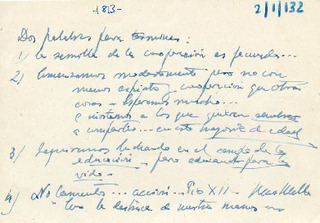 -183-
2/1/132
Dos palabras para terminar:
1) la semilla de la cooperación es fecunda...
2) Comenzamos modestamente pero no con
menos espíritu y cooperación que otras
cosas - Esperamos mucho...
a los que quieran sembrar
y compartir... en esta mayoría de edad
3) Seguiremos luchando en el campo de la
educación - pero educando para la
vida -
4) No lamentos... acción... Pio XII -
de nuestra manos